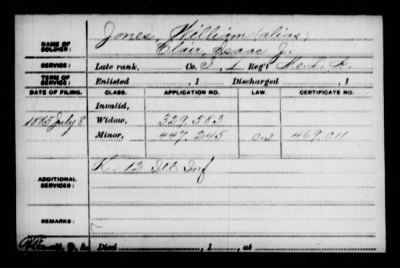 Jones, William (alias)
NAME OF SOLDIER: Clair, Isaac J.
SERVICE: Late rank, Co. Reg't
TERM OF SERVICE: Enlisted , 1 Discharged , 1
DATE OF FILING. CLASS. APPLICATION NO. LAW. CERTIFICATE NO.
Invalid,
1885 July 8 Widow, 329.583
Minor, 447.245 469.011
ADDITIONAL SERVICES: 12 Inf
REMARKS:
Died , 1 , at